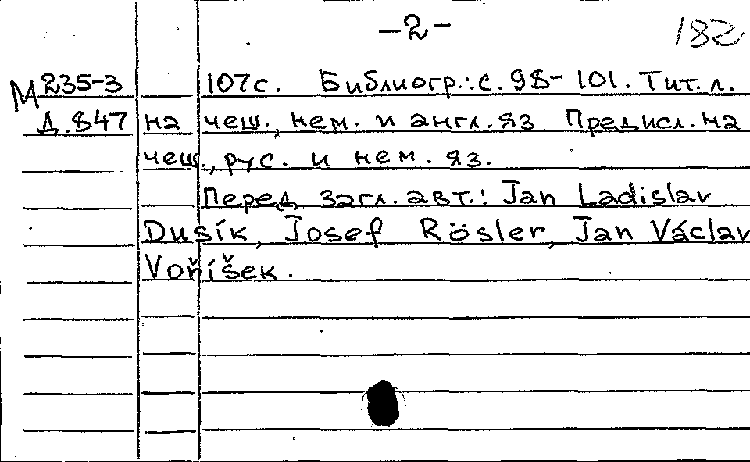 -2-
182
М 235-3 107с. Библиогр.: с. 98-101. Тит. л.
Д. 847 на чеш., нем. и англ. яз Предисл. на
чеш., рус. и нем. яз.
Перед загл. авт.: Jan Ladislav
Dusík, Josef Rösler, Jan Václav
Voříšek.